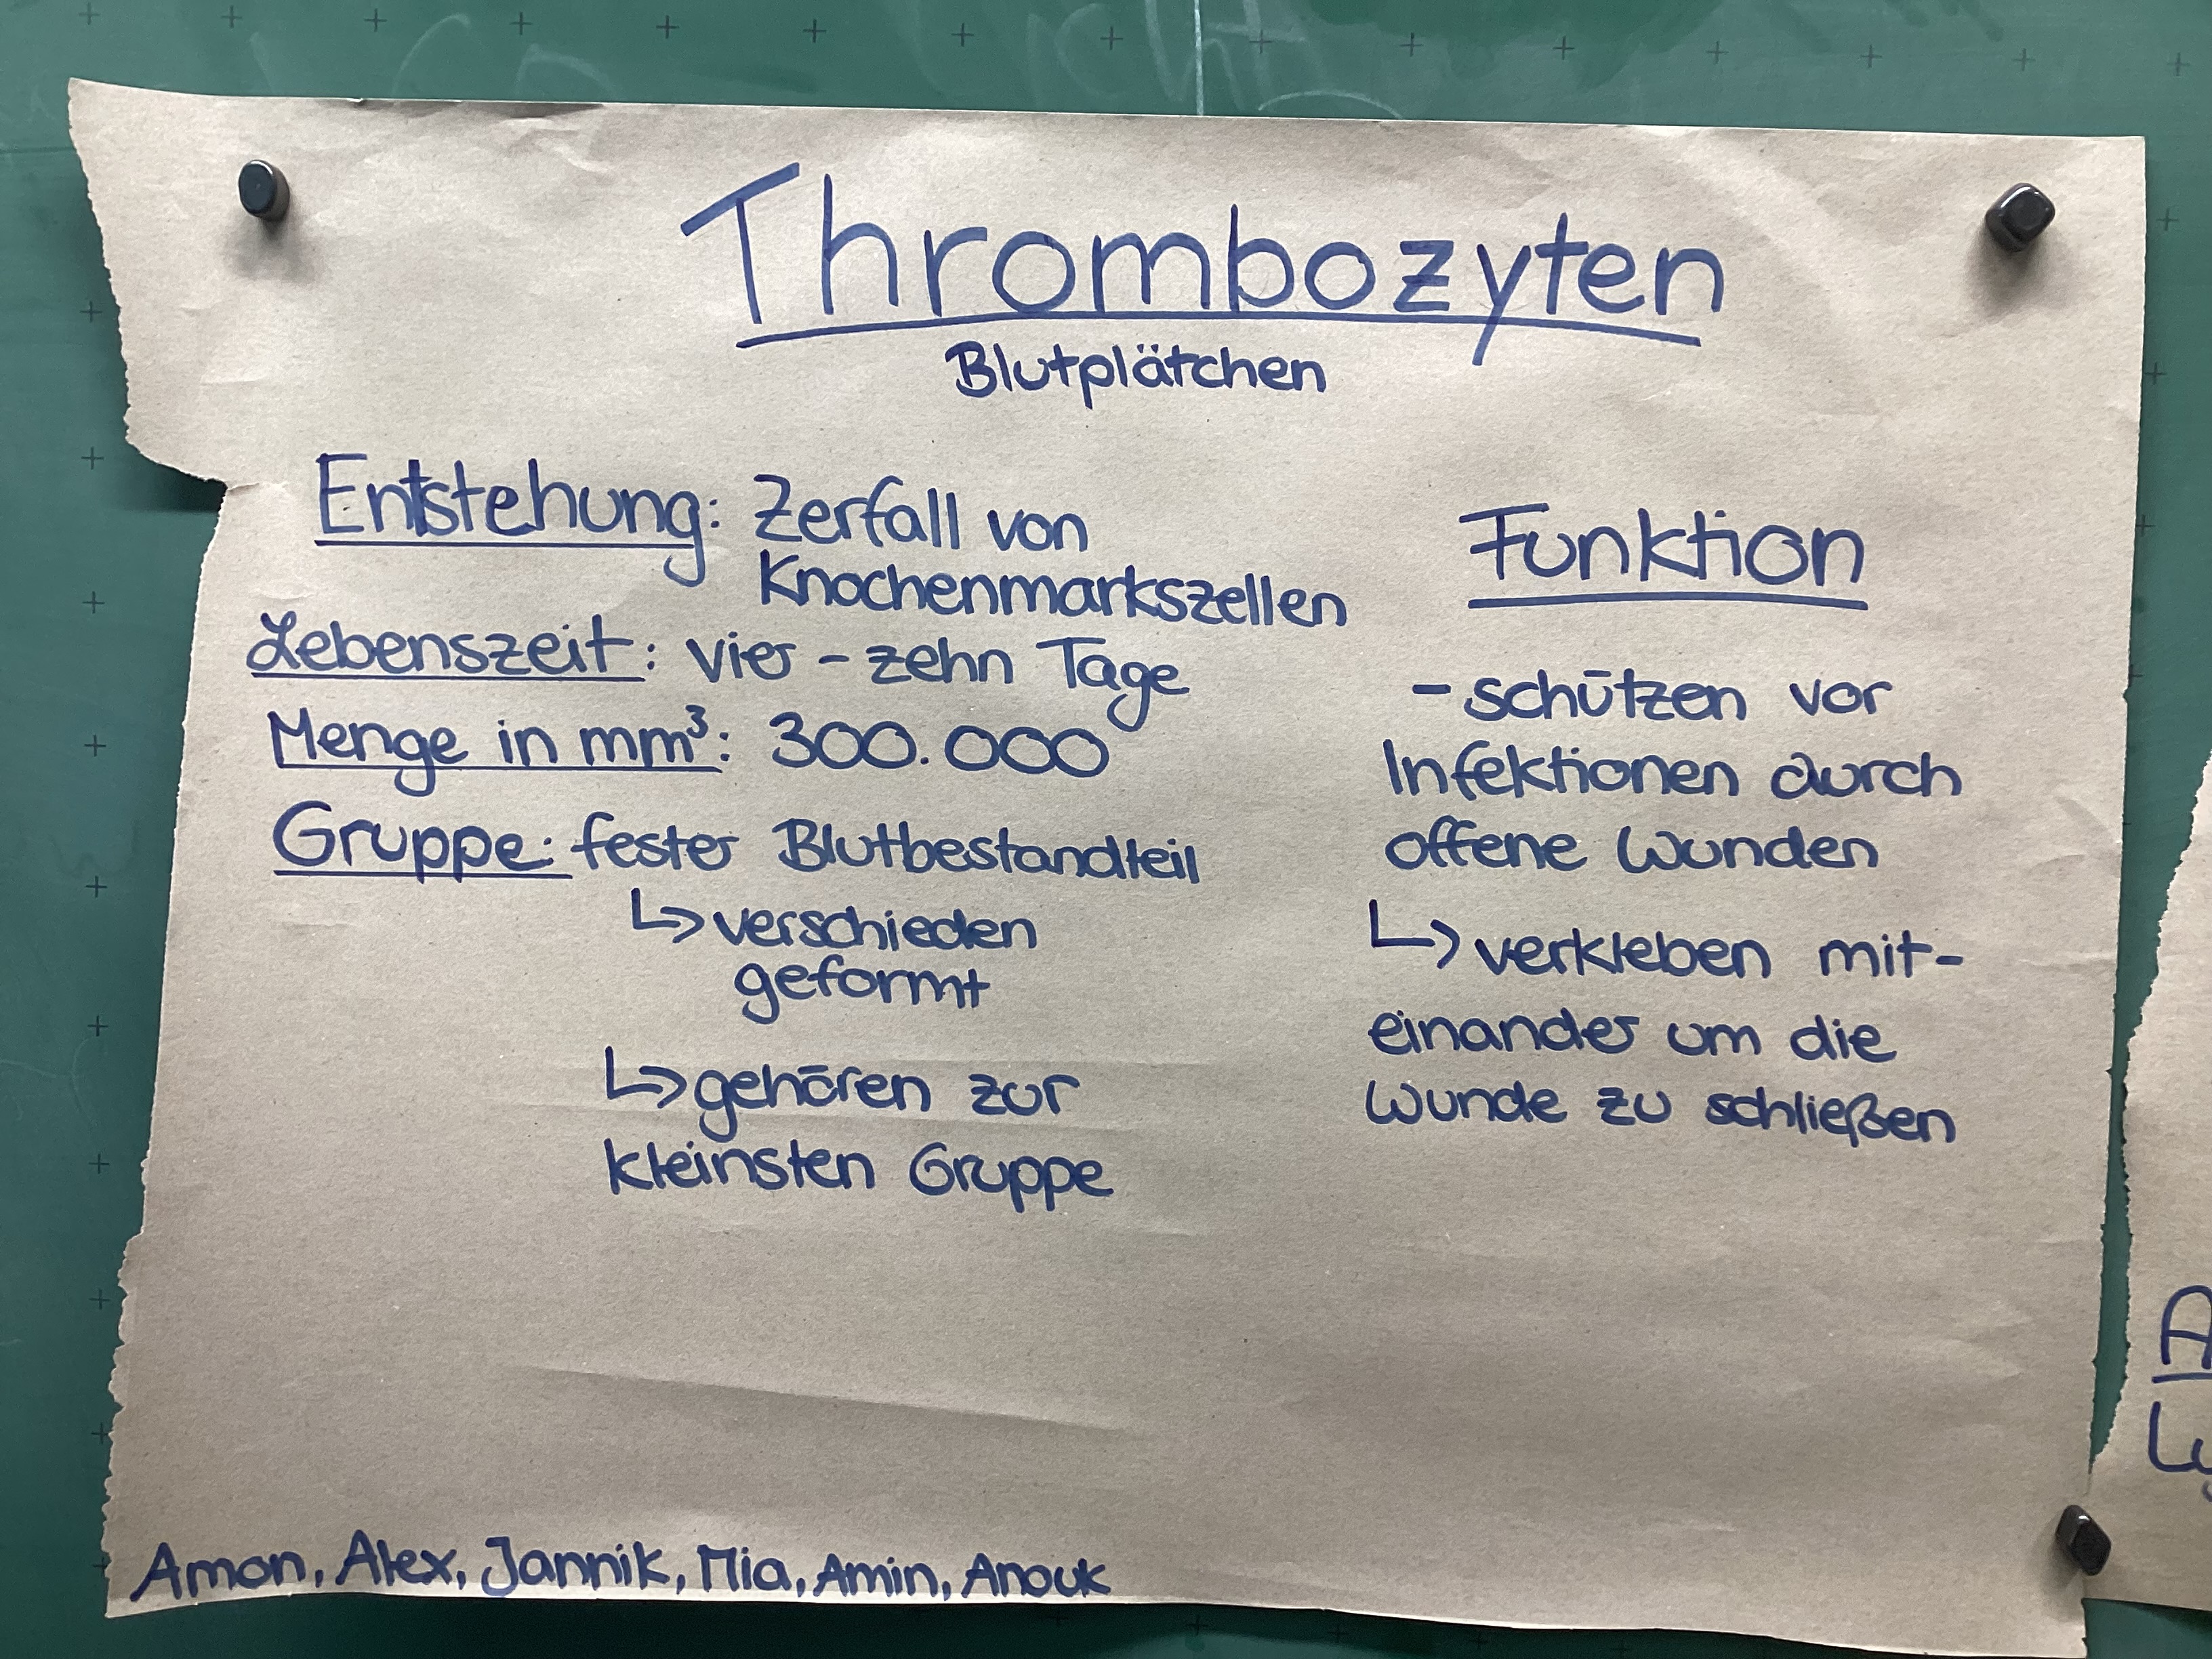 Thrombozyten
Blutplätchen
Entstehung: Zerfall von
Knochenmarkszellen
Lebenszeit: vier - zehn Tage
Menge in mm³: 300.000
Gruppe: fester Blutbestandteil
↳ verschieden
geformt
↳ gehören zur
kleinsten Gruppe
Funktion
- schützen vor
Infektionen durch
offene Wunden
↳ verkleben mit-
einander um die
Wunde zu schließen
Amon, Alex, Jannik, Mia, Amin, Anouk